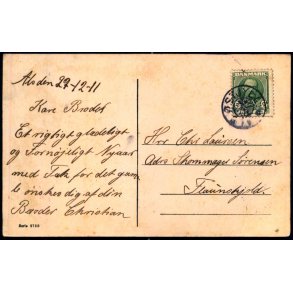 Alsden 29-12-11
Kære Broder
Et rigtigt glædeligt
og Fornøjeligt Nyaar
med Tak for det gam
le ønskes dig af din
Broder Christian
Serie 6789
DANMARK
Hr Chr Laursen
Adrs Thommas Sørensen